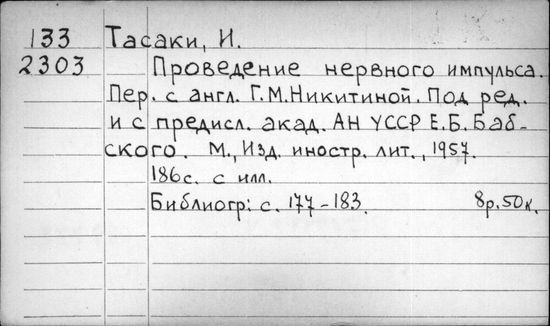 133 Тасаки, И.
2303 Проведение нервного импульса.
Пер. с англ. Г.М.Никитиной. Под ред.
и с предисл. акад. АН УССР Е.Б. Баб-
ского. М., Изд. иностр. лит., 1957.
186с. с илл.
Библиогр: с. 177-183. 8р.50к.